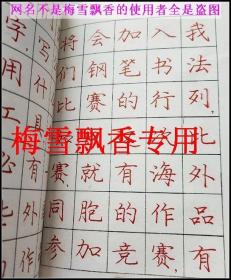 网名不是梅雪飘香的使用者全是盗图
将会加入我
们钢笔书法
比赛的行列,
北
赛,就有海外
同胞的作品
参加竞赛,有
字,写
用什
工
外
梅雪飘香专用